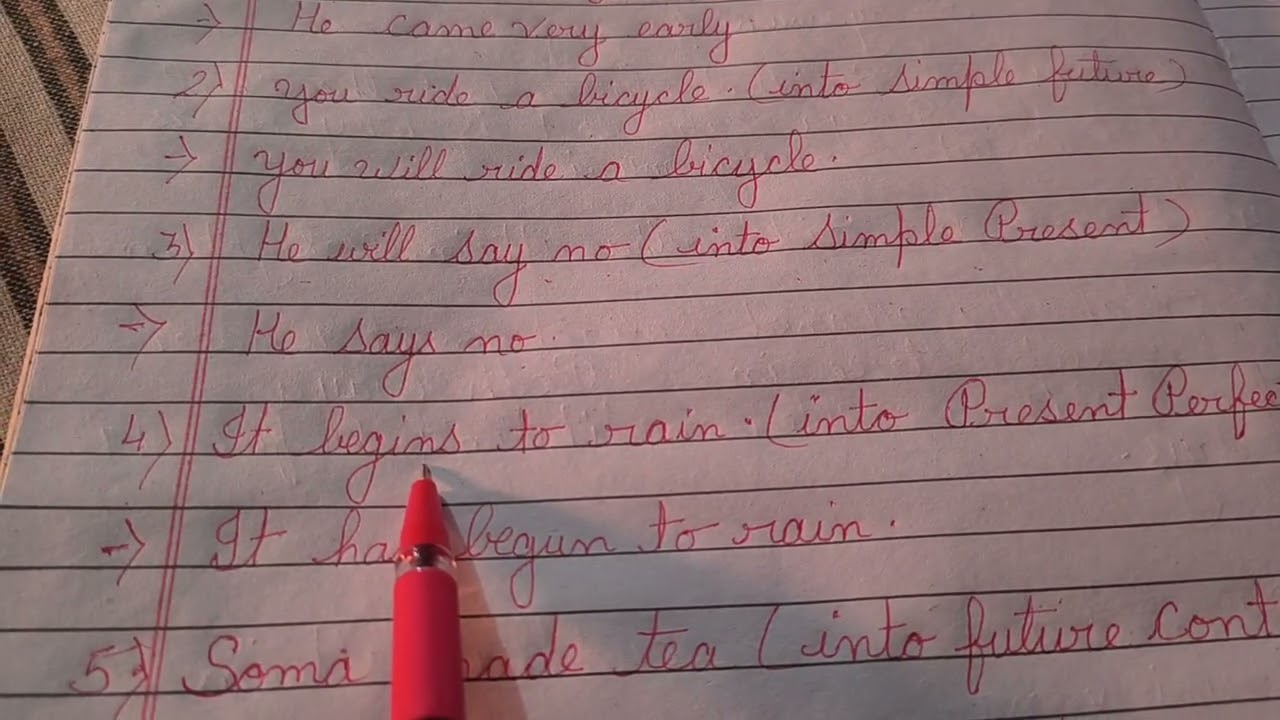 → He came very early.
2) You ride a bicycle. (into simple future)
→ You will ride a bicycle.
3) He will say no (into simple Present)
→ He says no.
4) It begins to rain. (into Present Perfec
→ It ha begun to rain.
5) Soma ade tea (into future cont